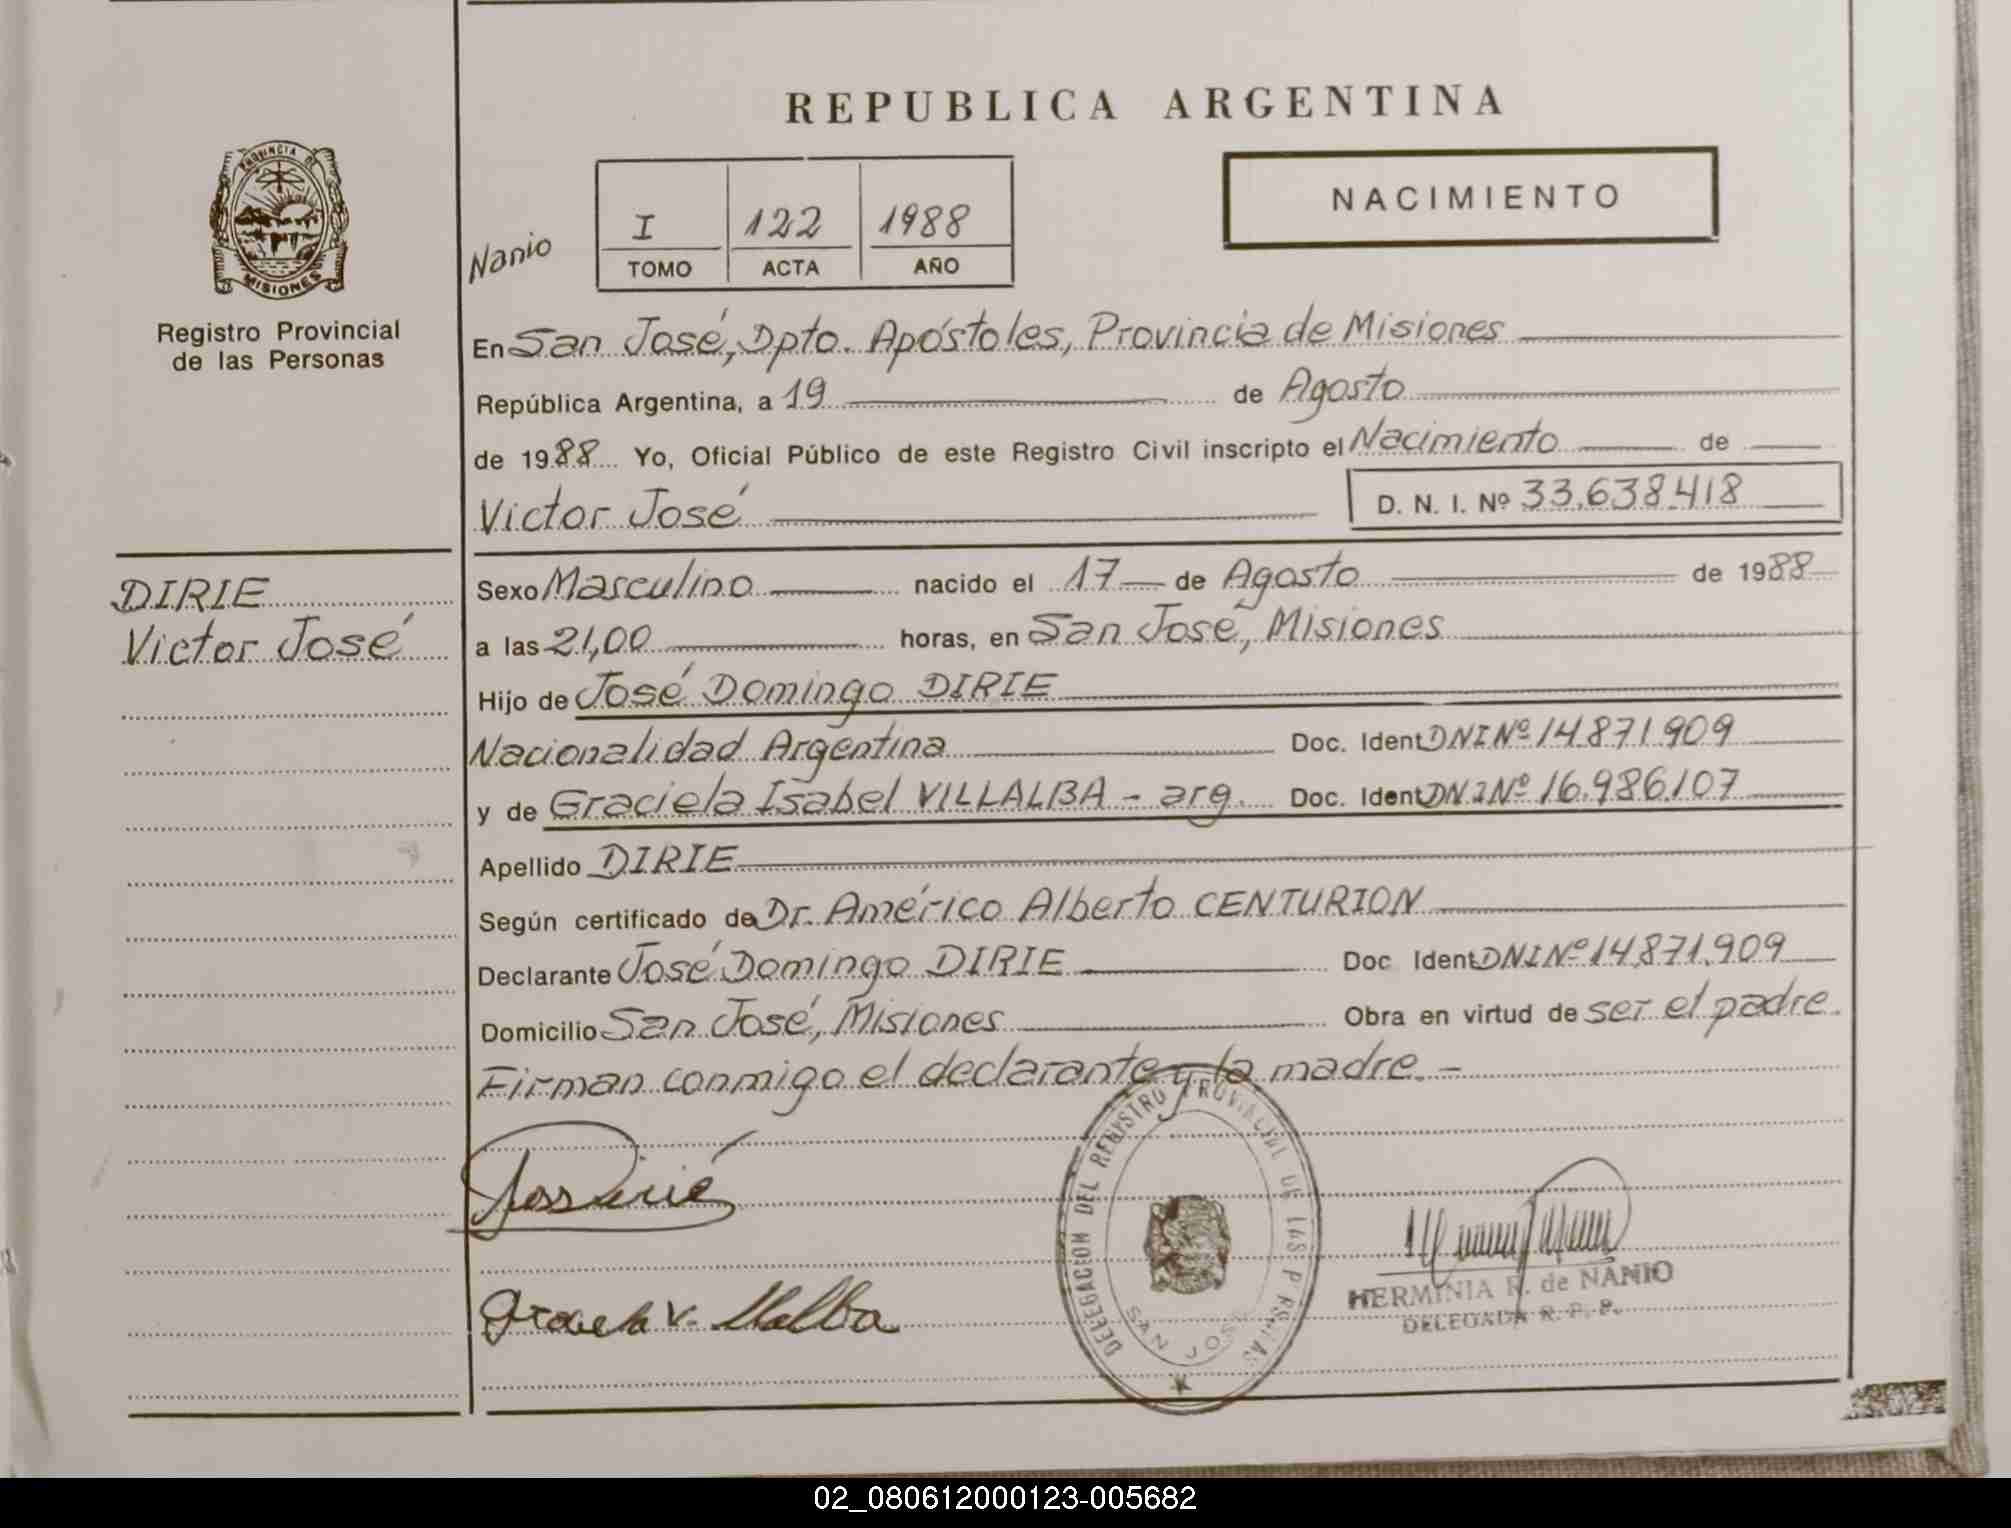 REPUBLICA ARGENTINA
NACIMIENTO
PROVINCIA DE
MISIONES
Registro Provincial
de las Personas
Nanio
I 122 1988
TOMO ACTA AÑO
En San José, Dpto. Apóstoles, Provincia de Misiones
República Argentina, a 19 de Agosto
de 1988 Yo, Oficial Público de este Registro Civil inscripto el Nacimiento de
Victor José D. N. I. Nº 33.638.418
DIRIE
Victor José
Sexo Masculino nacido el 17 de Agosto de 1988
a las 21,00 horas, en San José, Misiones
Hijo de José Domingo DIRIE
Nacionalidad Argentina Doc. Ident DNI Nº 14.871.909
y de Graciela Isabel VILLALBA - arg. Doc. Ident DNI Nº 16.986.107
Apellido DIRIE
Según certificado de Dr. Américo Alberto CENTURION
Declarante José Domingo DIRIE Doc Ident DNI Nº 14.871.909
Domicilio San José, Misiones Obra en virtud de ser el padre.
Firman conmigo el declarante y la madre. -
Graciela V. Villalba
DELEGACION DEL REGISTRO PROVINCIAL DE LAS PERSONAS
SAN JOSE
HERMINIA R. de NANIO
DELEGADA R. P. P.
02_080612000123-005682